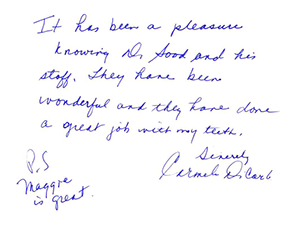 It has been a pleasure
knowing Dr Sood and his
staff. They have been
wonderful and they have done
a great job with my teeth.
Sincerely
P.S
Maggie
is great.